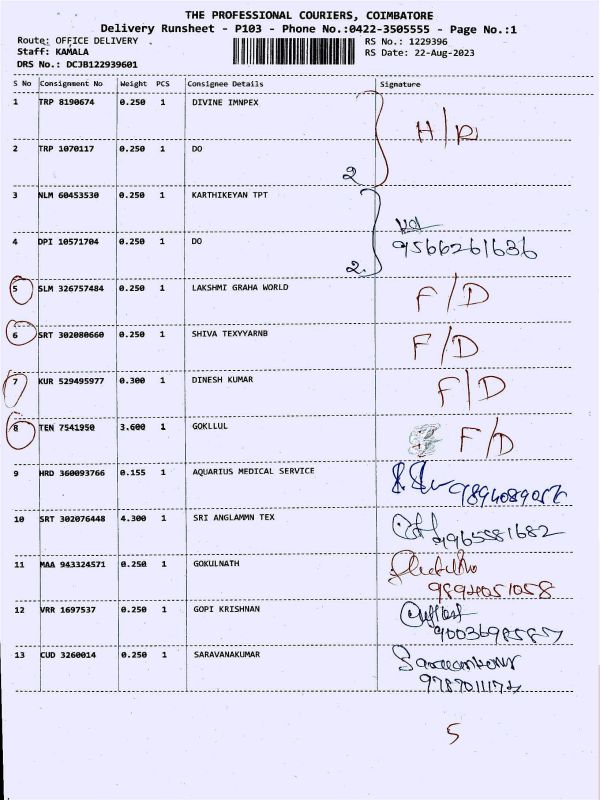 THE PROFESSIONAL COURIERS, COIMBATORE
Delivery Runsheet - P103 - Phone No.:0422-3505555 - Page No.:1
Route: OFFICE DELIVERY RS No.: 1229396
Staff: KAMALA RS Date: 22-Aug-2023
DRS No.: DCJB122939601
S No Consignment No Weight PCS Consignee Details Signature
1 TRP 8190674 0.250 1 DIVINE IMNPEX
H/R
2 TRP 1070117 0.250 1 DO
2
3 NLM 60453530 0.250 1 KARTHIKEYAN TPT
4 DPI 10571704 0.250 1 DO 9566261636
2
5 SLM 326757484 0.250 1 LAKSHMI GRAHA WORLD F/D
6 SRT 302080660 0.250 1 SHIVA TEXYYARNB F/D
7 KUR 529495977 0.300 1 DINESH KUMAR F/D
8 TEN 7541950 3.600 1 GOKLLUL F/D
9 HRD 360093766 0.155 1 AQUARIUS MEDICAL SERVICE
10 SRT 302076448 4.300 1 SRI ANGLAMMN TEX
9965581682
11 MAA 943324571 0.250 1 GOKULNATH
9894051058
12 VRR 1697537 0.250 1 GOPI KRISHNAN
13 CUD 3260014 0.250 1 SARAVANAKUMAR
5